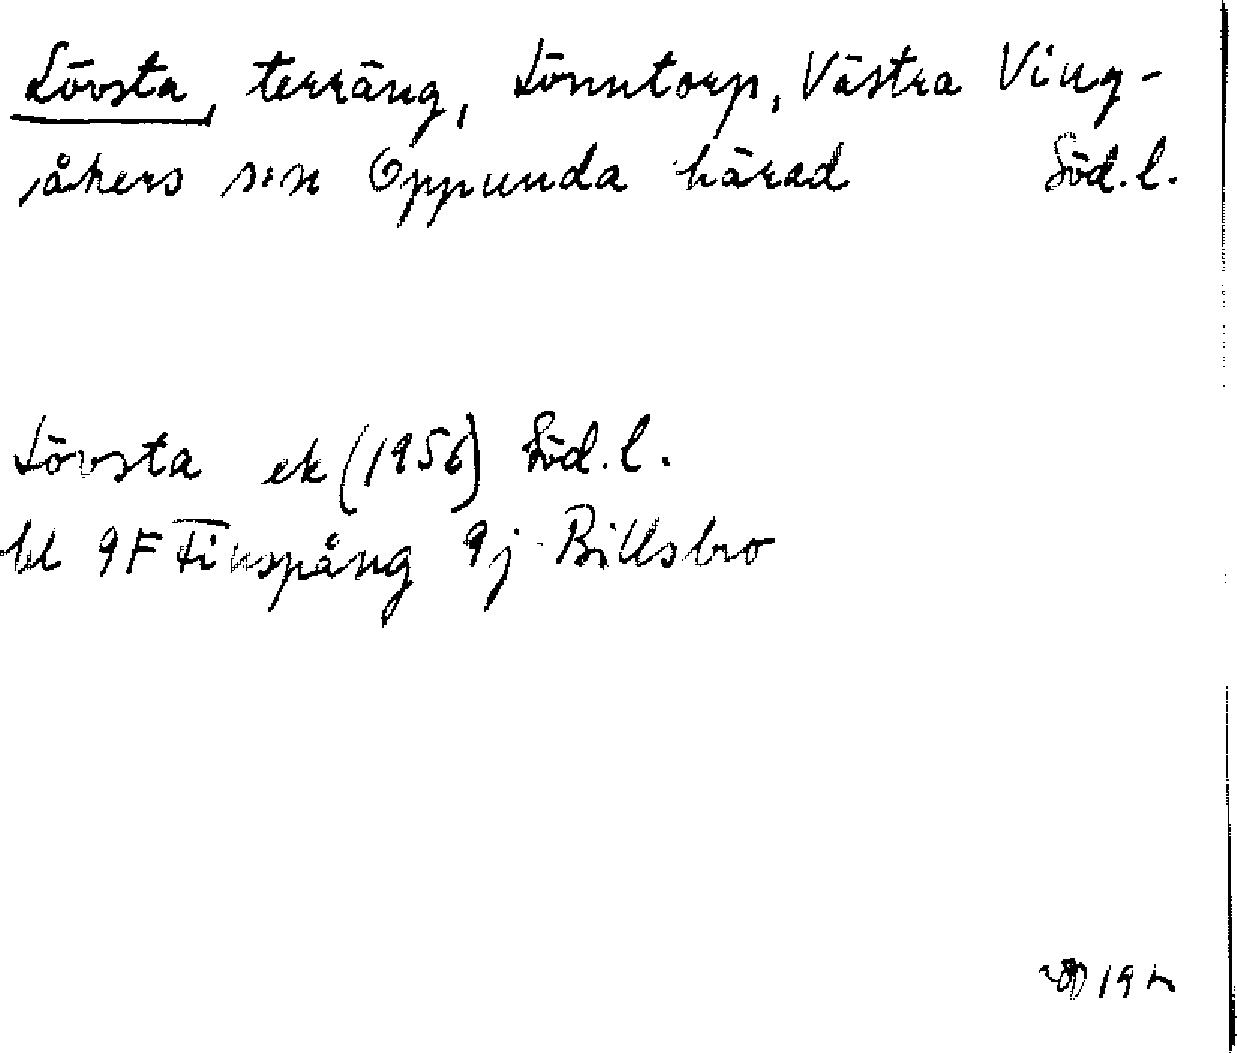 Lövsta, terräng, Lönntorp, Västra Ving-
åkers sn Oppunda härad Söd.l.
Lövsta ek (1956) Söd.l.
bl 9F Finspång 9j Billsbro